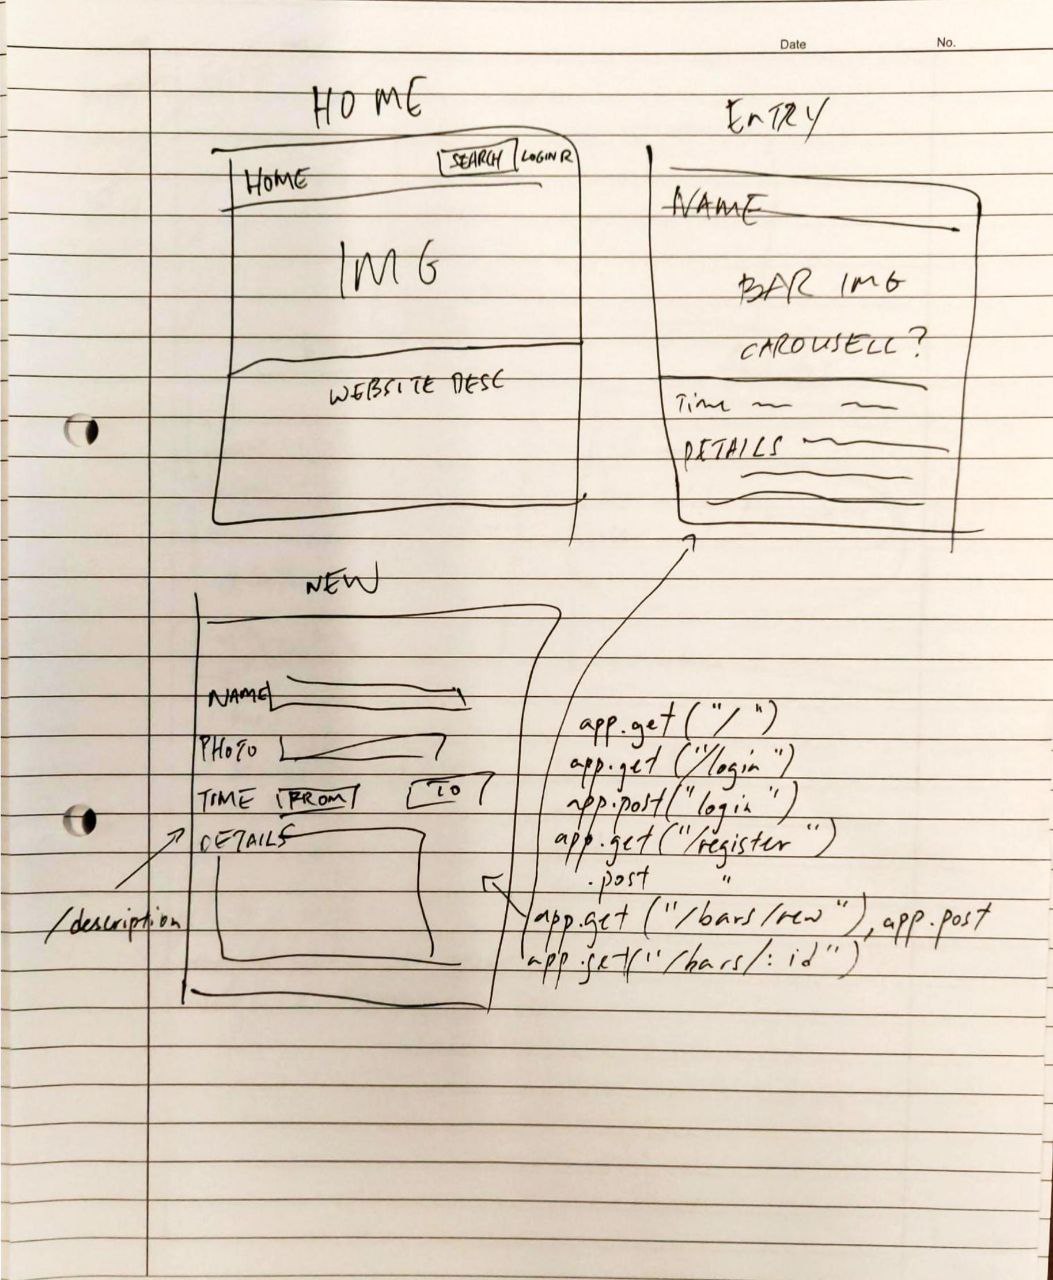 Date No.
HOME
HOME SEARCH LOGIN R
IMG
WEBSITE DESC
ENTRY
NAME
BAR IMG
CAROUSELL?
Time
DETAILS
NEW
NAME
PHOTO
TIME FROM TO
DETAILS
/description
app.get("/")
app.get("/login")
app.post("login")
app.get("/register")
.post "
app.get("/bars/new"), app.post
app.get("/bars/:id")